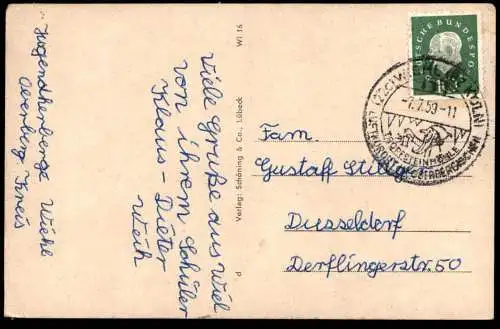 Jugendherberge Wiehl
Oberberg. Kreis
Viele Grüße aus Wiel
von ihrem Schüler
Klaus - Dieter
Weik
Verlag: Schöning & Co., Lübeck
Wi 16
DEUTSCHE BUNDESPOST
-7.7.59-11
TROPFSTEINHÖHLE
Fam.
Gustaff
Dusseldorf
Derflingerstr. 50